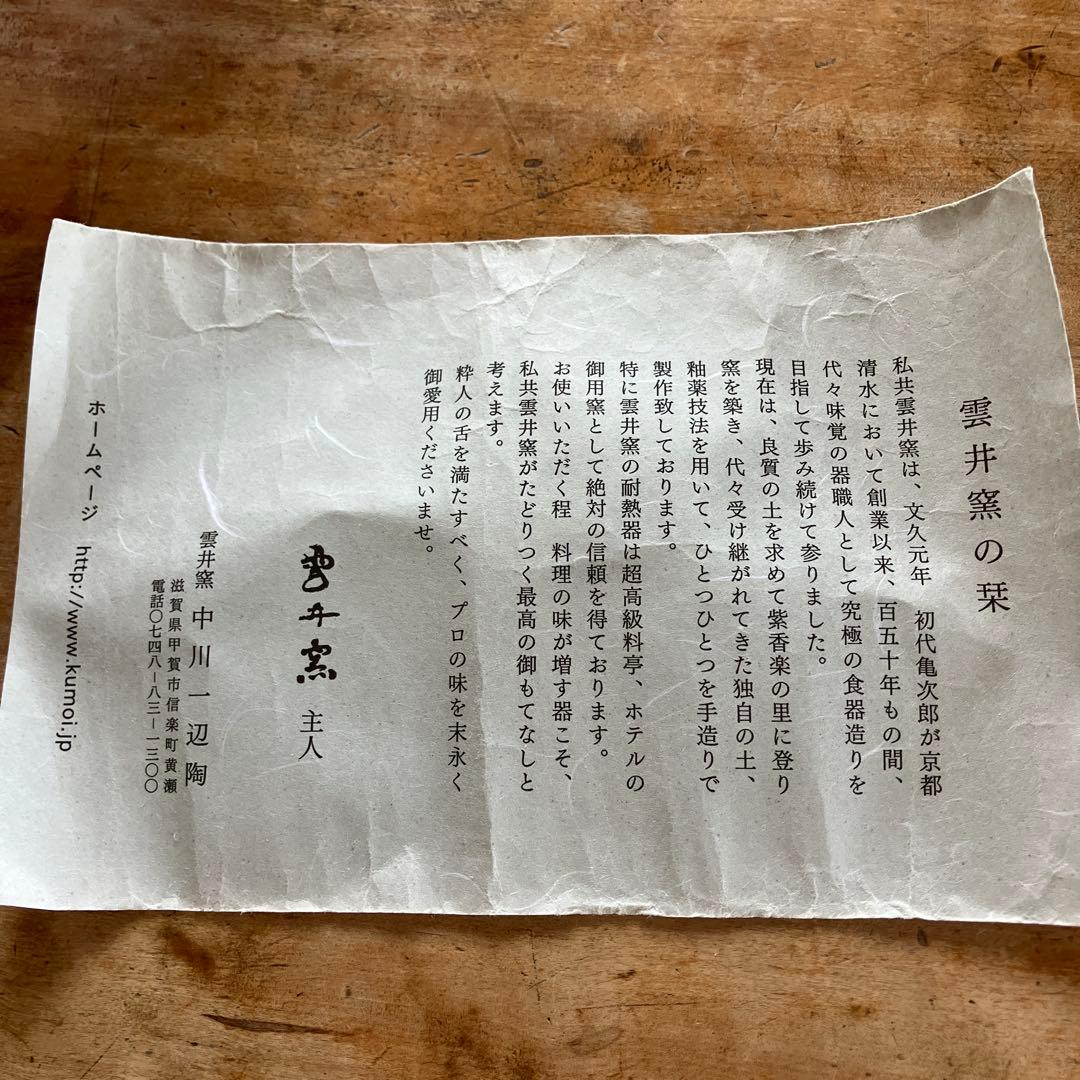 雲井窯の栞
私共雲井窯は、文久元年　初代亀次郎が京都
清水において創業以来、百五十年もの間、
代々味覚の器職人として究極の食器造りを
目指して歩み続けて参りました。
現在は、良質の土を求めて紫香楽の里に登り
窯を築き、代々受け継がれてきた独自の土、
釉薬技法を用いて、ひとつひとつを手造りで
製作致しております。
特に雲井窯の耐熱器は超高級料亭、ホテルの
御用窯として絶対の信頼を得ております。
お使いいただく程　料理の味が増す器こそ、
私共雲井窯がたどりつく最高の御もてなしと
考えます。
粋人の舌を満たすべく、プロの味を末永く
御愛用くださいませ。
雲井窯　主人
雲井窯　中川一辺陶
滋賀県甲賀市信楽町黄瀬
電話〇七四八－八三－一三〇〇
ホームページ　http://www.kumoi.jp